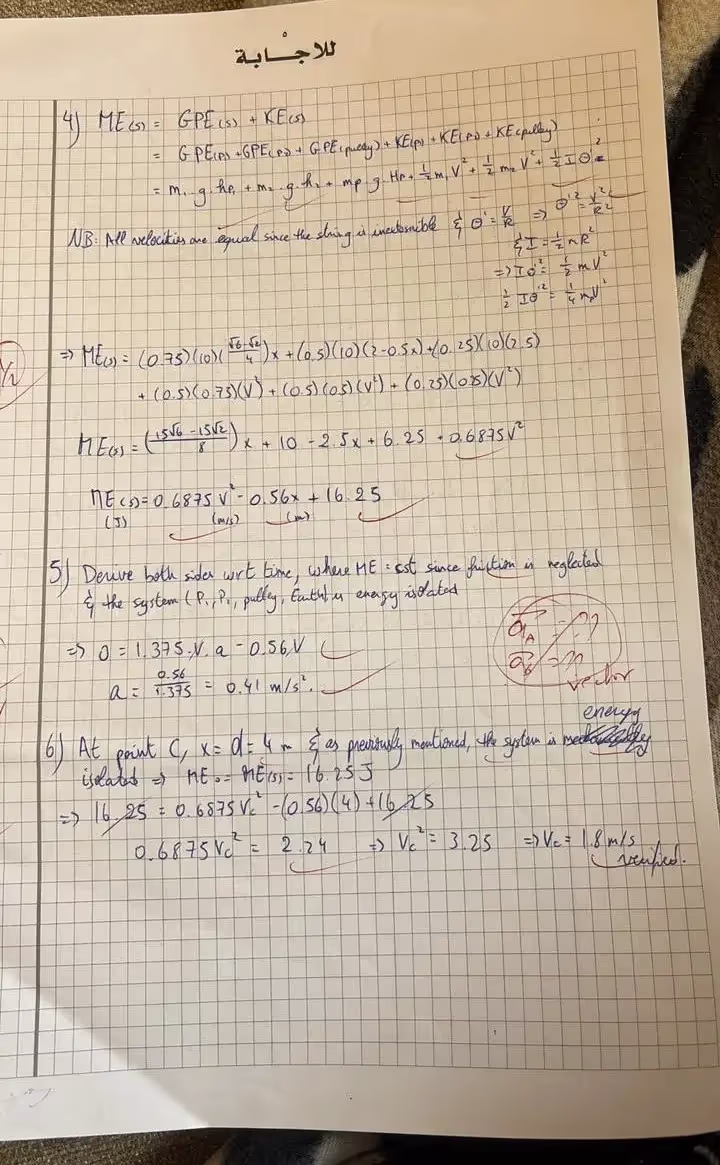 للاجــابة
4) ME(s) = GPE(s) + KE(s)
= GPE(P1) + GPE(P2) + GPE(pulley) + KE(P1) + KE(P2) + KE(pulley)
= m1 . g . hP1 + m2 . g . h2 + mp g . Hp + 1/2 m1 V² + 1/2 m2 V² + 1/2 I θ'²
NB: All velocities are equal since the string is inextensible & θ' = V/R => θ'² = V²/R²
& I = 1/2 m R²
=> I θ'² = 1/2 m V²
1/2 I θ'² = 1/4 m V²
=> ME(s) = (0.75)(10)((√6-√2)/4)x + (0.5)(10)(2-0.5x) + (0.25)(10)(2.5)
+ (0.5)(0.75)(V²) + (0.5)(0.5)(V²) + (0.25)(0.25)(V²)
ME(s) = ((15√6 - 15√2)/8) x + 10 - 2.5x + 6.25 + 0.6875V²
ME(s) = 0.6875 V² - 0.56x + 16.25
(J) (m/s) (m)
5) Derive both sides wrt time, where ME = cst since friction is neglected
& the system (P1, P2, pulley, Earth) is energy isolated
=> 0 = 1.375.V.a - 0.56V
a = 0.56/1.375 = 0.41 m/s².
vector
energy
6) At point C, x = d = 4 m & as previously mentioned, the system is
isolated => ME0 = ME(s) = 16.25 J
=> 16.25 = 0.6875 Vc² - (0.56)(4) + 16.25
0.6875 Vc² = 2.24 => Vc² = 3.25 => Vc = 1.8 m/s
verified.